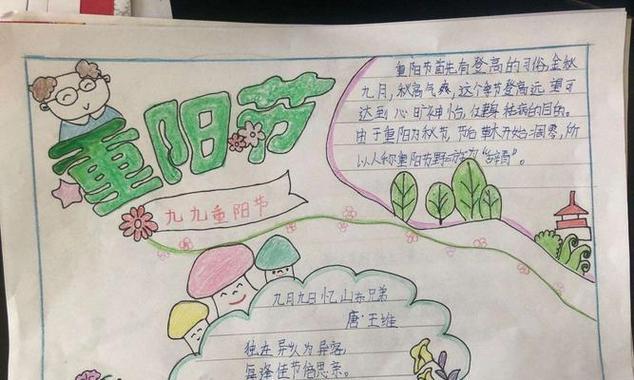 重阳节
九九重阳节
重阳节首先有登高的习俗,金秋
九月,秋高气爽,这个季节登高远望可
达到心旷神怡,健身祛病的目的。
由于重阳乃秋节,节后草木开始凋零,所
以人称重阳节野游为“辞青”。
九月九日忆山东兄弟
唐·王维
独在异乡为异客,
每逢佳节倍思亲。